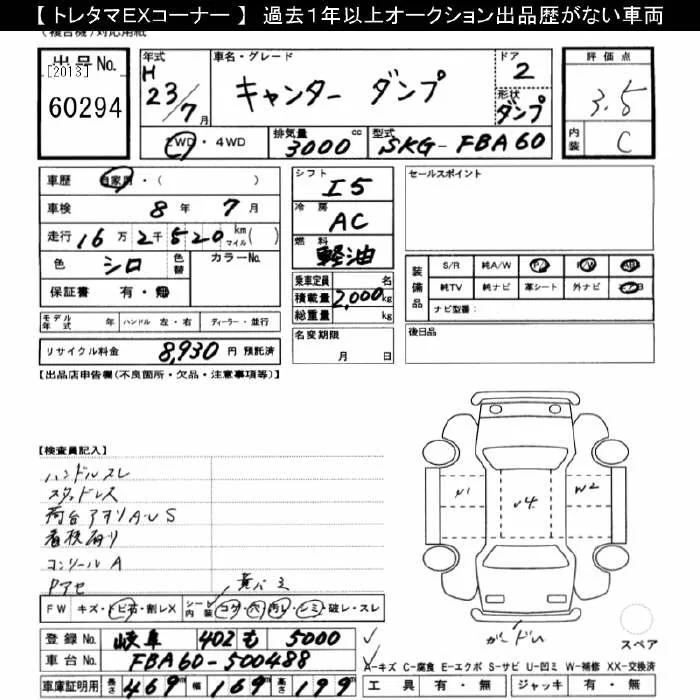 【 トレタマEXコーナー 】 過去1年以上オークション出品歴がない車両
(複合機)対応用紙
出品No. [2013] 60294
年式 H 23/7月
車名・グレード キャンター ダンプ
ドア 2
形状 ダンプ
評価点 3.5
内装 C
2WD・4WD
排気量 3000 cc
型式 SKG-FBA60
車歴 自家用・( )
車検 8年 7月
走行 16万2千520 km マイル( )
色 シロ 色替 カラーNo.
保証書 有・無
シフト I5
冷房 AC
燃料 軽油
乗車定員 名
積載量 2,000 kg
総重量 kg
名変期限 月 日
セールスポイント
装備品 S/R 純A/W P/S P/W
純TV 純ナビ 革シート 外ナビ
ナビ型番:
後日品
モデル年式 年 ハンドル 左・右 ディーラー・並行
リサイクル料金 8,930 円 預託済
【出品店申告欄(不良箇所・欠品・注意事項等)】
【検査員記入】
ハンドルスレ
スタッドレス
荷台アオリA・U S
看板有り
コンソールA
Pアセ
黄バミ
FW キズ・トビ石・割レX シート内装 コゲ・穴・汚レ・シミ・破レ・スレ
W1 U4 W2
ガードU
スペア
登録No. 岐阜 402 も 5000
車台No. FBA60-500488
車庫証明用 長さ 469 幅 169 高さ 199
A-キズ C-腐食 E-エクボ S-サビ U-凹ミ W-補修 XX-交換済
工具 有・無 ジャッキ 有・無